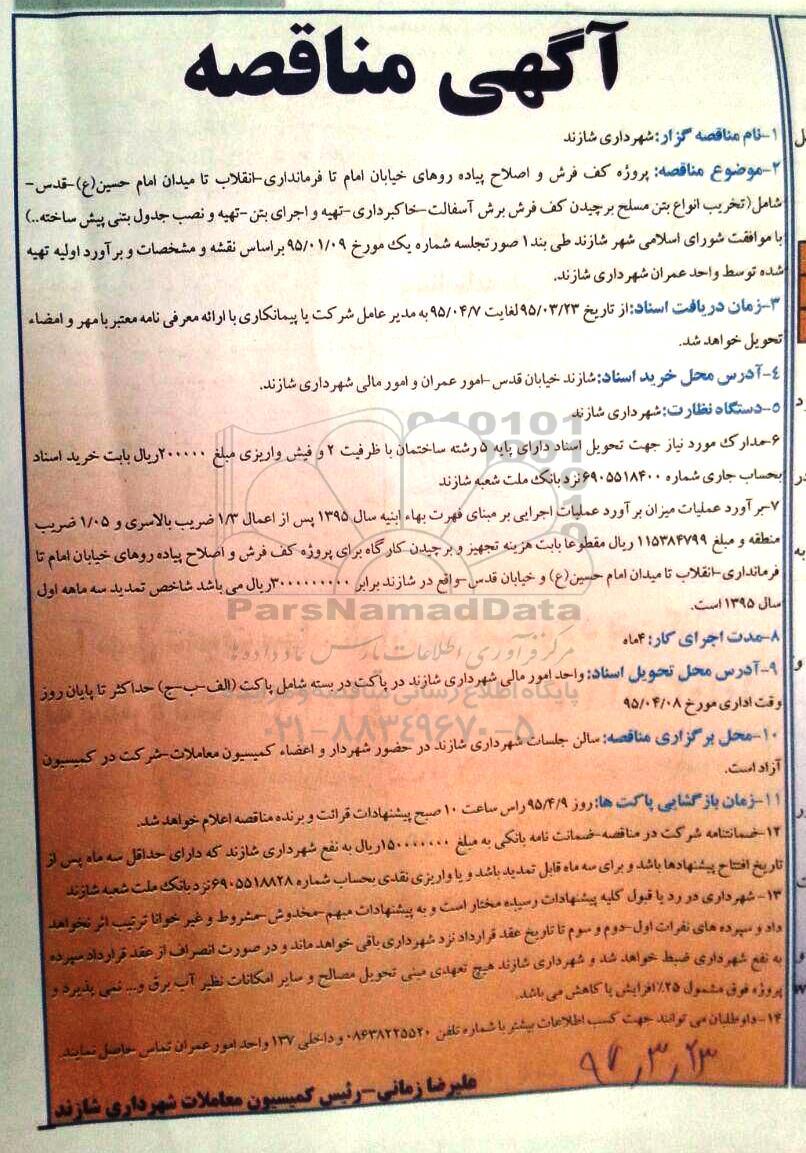 آگهی مناقصه
۱-نام مناقصه گزار: شهرداری شازند
۲-موضوع مناقصه: پروژه کف فرش و اصلاح پیاده روهای خیابان امام تا فرمانداری-انقلاب تا میدان امام حسین(ع)-قدس-
شامل(تخریب انواع بتن مسلح برچیدن کف فرش برش آسفالت-خاکبرداری-تهیه و اجرای بتن-تهیه و نصب جدول بتنی پیش ساخته..)
با موافقت شورای اسلامی شهر شازند طی بند۱ صورتجلسه شماره یک مورخ ۹۵/۰۱/۰۹ براساس نقشه و مشخصات و برآورد اولیه تهیه
شده توسط واحد عمران شهرداری شازند.
۳-زمان دریافت اسناد: از تاریخ ۹۵/۰۳/۲۳ لغایت ۹۵/۰۴/۷ به مدیر عامل شرکت یا پیمانکاری با ارائه معرفی نامه معتبر با مهر و امضاء
تحویل خواهد شد.
۴-آدرس محل خرید اسناد: شازند خیابان قدس-امور عمران و امور مالی شهرداری شازند.
۵-دستگاه نظارت: شهرداری شازند
۶-مدارک مورد نیاز جهت تحویل اسناد دارای پایه ۵ رشته ساختمان با ظرفیت ۲ و فیش واریزی مبلغ ۲۰۰۰۰۰ ریال بابت خرید اسناد
بحساب جاری شماره ۶۹۰۵۵۱۸۴۰۰ نزد بانک ملت شعبه شازند
۷-برآورد عملیات میزان برآورد عملیات اجرایی بر مبنای فهرت بهاء ابنیه سال ۱۳۹۵ پس از اعمال ۱/۳ ضریب بالاسری و ۱/۰۵ ضریب
منطقه و مبلغ ۱۱۵۳۸۴۷۹۹ ریال مقطوعا بابت هزینه تجهیز و برچیدن کارگاه برای پروژه کف فرش و اصلاح پیاده روهای خیابان امام تا
فرمانداری-انقلاب تا میدان امام حسین(ع) و خیابان قدس-واقع در شازند برابر ۳۰۰۰۰۰۰۰۰۰ ریال می باشد شاخص تمدید سه ماهه اول
سال ۱۳۹۵ است.
ParsNamadData
۸-مدت اجرای کار: ۴ماه
مرکز فرآوری اطلاعات پارس نماد داده ها
۹-آدرس محل تحویل اسناد: واحد امور مالی شهرداری شازند در پاکت در بسته شامل پاکت (الف-ب-ج) حداکثر تا پایان روز
پایگاه اطلاع رسانی مناقصه و مزایده
وقت اداری مورخ ۹۵/۰۴/۰۸
۰۲۱-۸۸۳۴۹۶۷۰-۵
۱۰-محل برگزاری مناقصه: سالن جلسات شهرداری شازند در حضور شهردار و اعضاء کمیسیون معاملات-شرکت در کمیسیون
آزاد است.
۱۱-زمان بازگشایی پاکت ها: روز ۹۵/۴/۹ راس ساعت ۱۰ صبح پیشنهادات قرائت و برنده مناقصه اعلام خواهد شد.
۱۲-ضمانتنامه شرکت در مناقصه-ضمانت نامه بانکی به مبلغ ۱۵۰۰۰۰۰۰۰ ریال به نفع شهرداری شازند که دارای حداقل سه ماه پس از
تاریخ افتتاح پیشنهادها باشد و برای سه ماه قابل تمدید باشد و یا واریزی نقدی بحساب شماره ۶۹۰۵۵۱۸۸۲۸ نزد بانک ملت شعبه شازند
۱۳-شهرداری در رد یا قبول کلیه پیشنهادات رسیده مختار است و به پیشنهادات مبهم-مخدوش-مشروط و غیر خوانا ترتیب اثر نخواهد
داد و سپرده های نفرات اول-دوم و سوم تا تاریخ عقد قرارداد نزد شهرداری باقی خواهد ماند و در صورت انصراف از عقد قرارداد سپرده
به نفع شهرداری ضبط خواهد شد و شهرداری شازند هیچ تعهدی مبنی تحویل مصالح و سایر امکانات نظیر آب برق و... نمی پذیرد و
پروژه فوق مشمول ۲۵٪ افزایش یا کاهش می باشد.
۱۴-داوطلبان می توانند جهت کسب اطلاعات بیشتر با شماره تلفن ۰۸۶۳۸۲۲۵۵۲۰ و داخلی ۱۳۷ واحد امور عمران تماس حاصل نمایند.
علیرضا زمانی-رئیس کمیسیون معاملات شهرداری شازند